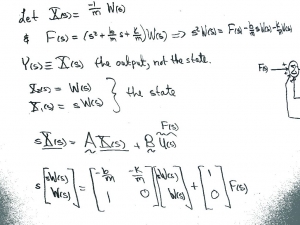 Let X(s) = -1/m W(s)
& F(s) = (s² + b/m s + k/m) W(s) ⇒ s² W(s) = F(s) - b/m s W(s) - k/m W(s)
Y(s) ≡ X(s) the output, not the state.
F(s) +
X₂(s) = W(s)
X₁(s) = s W(s) } the state
F(s)
s X(s) = A X(s) + B U(s)
s [sW(s) W(s)] = [-b/m -k/m 1 0] [sW(s) W(s)] + [1 0] F(s)